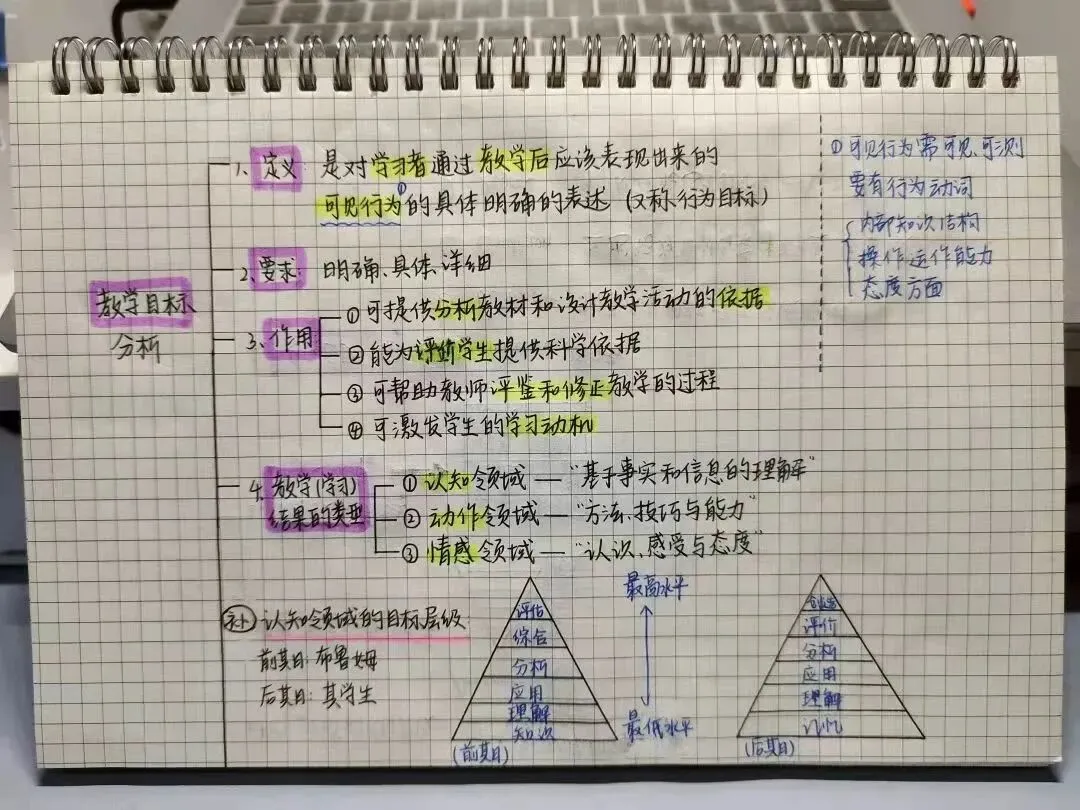 教学目标
分析
1、定义 是对学习者通过教学后应该表现出来的
可见行为①的具体明确的表述 (又称行为目标)
2、要求: 明确、具体、详细
3、作用
①可提供分析教材和设计教学活动的依据
②能为评价学生提供科学依据
③可帮助教师评鉴和修正教学的过程
④可激发学生的学习动机
4、教学(学习)
结果的类型
①认知领域 — “基于事实和信息的理解”
②动作领域 — “方法、技巧与能力”
③情感领域 — “认识、感受与态度”
补 认知领域的目标层级
前期: 布鲁姆
后期: 其学生
评估
综合
分析
应用
理解
知识
(前期)
最高水平
最低水平
创造
评价
分析
应用
理解
记忆
(后期)
①可见行为需可见、可测
要有行为动词
内部知识结构
操作、运作能力
态度方面